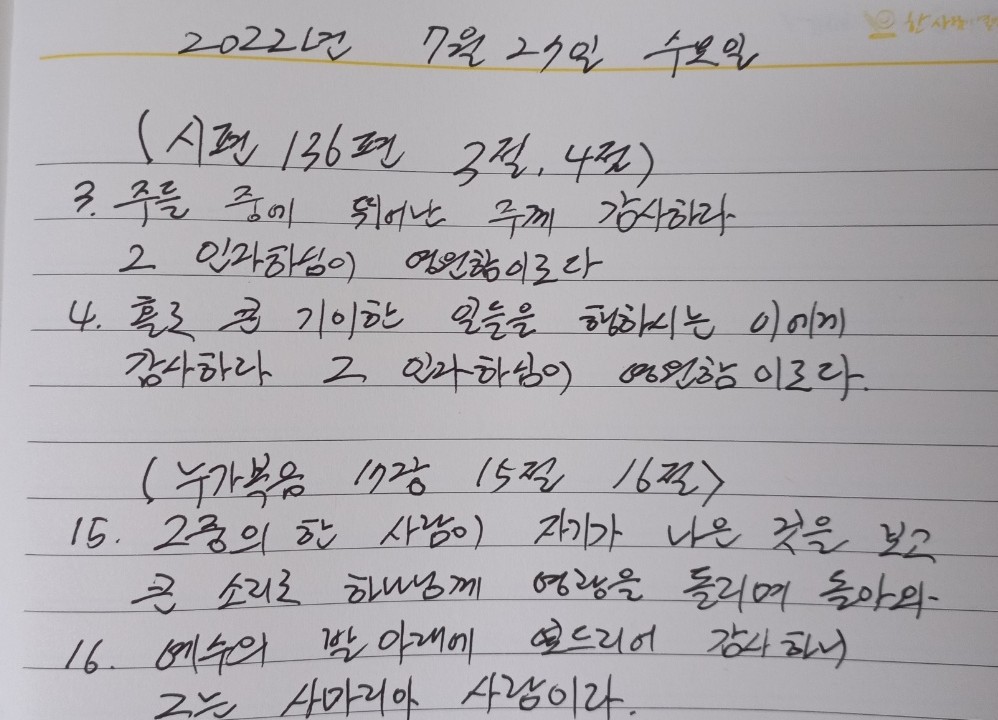 2022년 7월 27일 수요일
(시편 136편 3절, 4절)
3. 주들 중에 뛰어난 주께 감사하라
그 인자하심이 영원함이로다
4. 홀로 큰 기이한 일들을 행하시는 이에게
감사하라 그 인자하심이 영원함이로다.
(누가복음 17장 15절 16절)
15. 그중의 한 사람이 자기가 나은 것을 보고
큰 소리로 하나님께 영광을 돌리며 돌아와
16. 예수의 발 아래에 엎드리어 감사하니
그는 사마리아 사람이라.